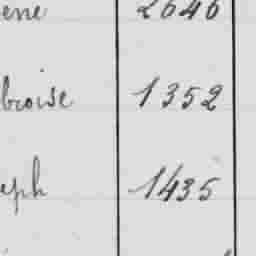 ene 2646
broise 1352
eph 1435